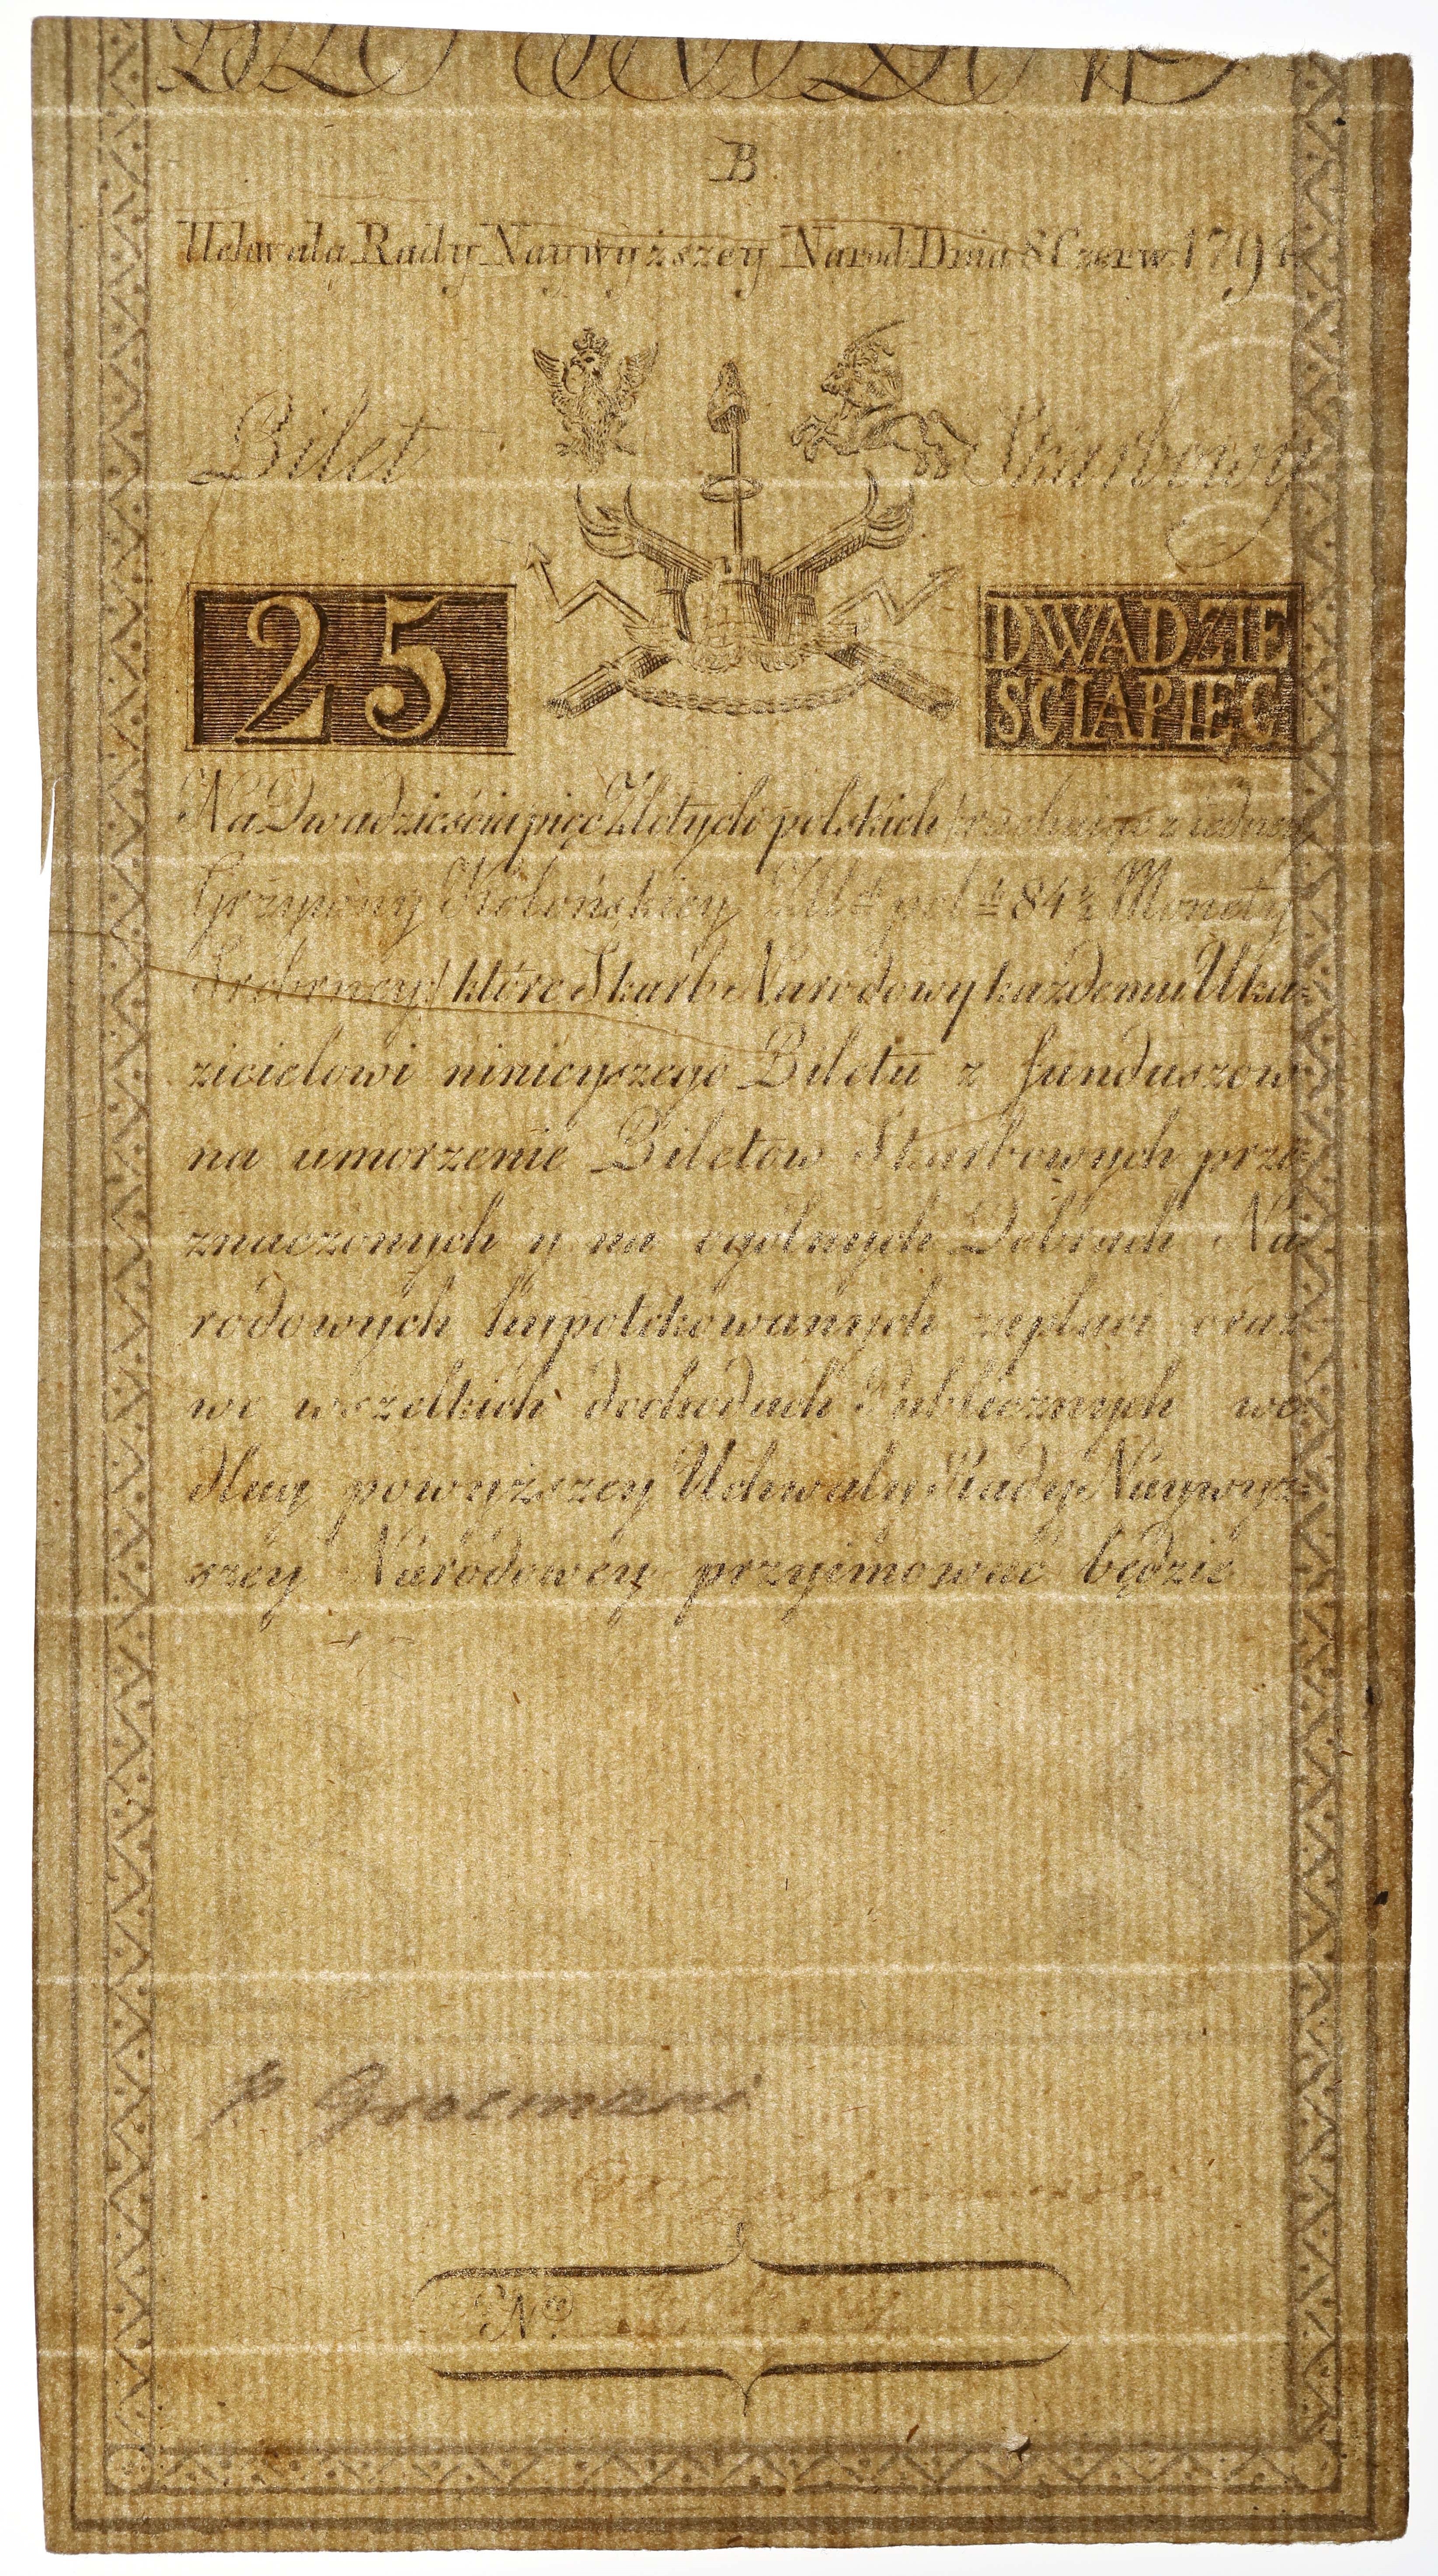 B
Uchwałą Rady Naywyższey Narod: Dnia 8 Czerw. 1794
Bilet Skarbowy
25
DWADZIE
SCIAPIĘC
Na Dwadzieścia pięć Złotych polskich (rachuiąc z iedney
Grzywny Kolońskiey Zł. pol. 84½ Monety
Srebrney) które Skarb Narodowy każdemu Oka=
zicielowi ninieyszego Biletu z funduszow
na umorzenie Biletow Skarbowych prze=
znaczonych y na ogólnych Dobrach Na=
rodowych hypotekowanych zapłaci oraz
we wszelkich dochodach Publicznych we=
dług powyższey Uchwały Rady Naywyż=
szey Narodowey przyimować będzie
N<sup>ro</sup>